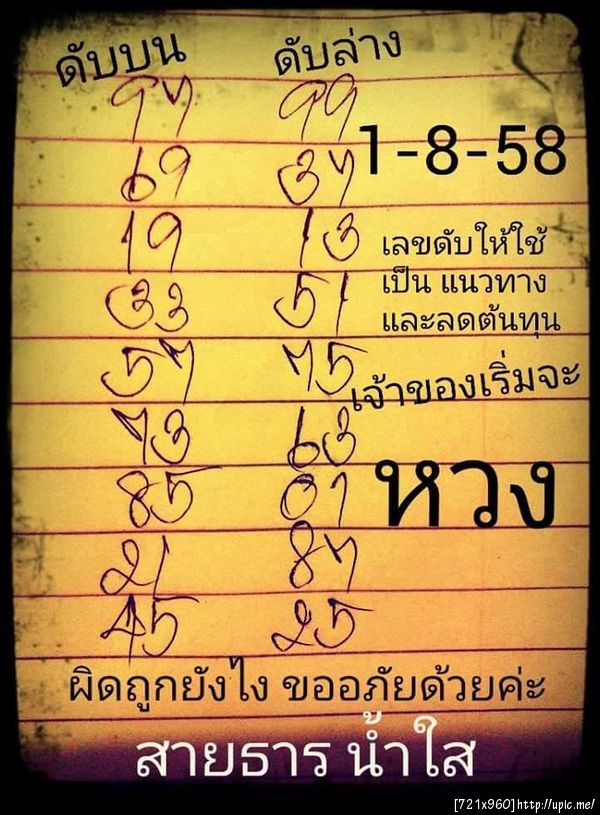 ดับบน ดับล่าง
97 99
69 37
1-8-58
19 13
เลขดับให้ใช้
เป็น แนวทาง
และลดต้นทุน
33 51
57 75
เจ้าของเริ่มจะ
หวง
73 63
85 01
21 87
45 25
ผิดถูกยังไง ขออภัยด้วยค่ะ
สายธาร น้ำใส
[721x960]http://upic.me/